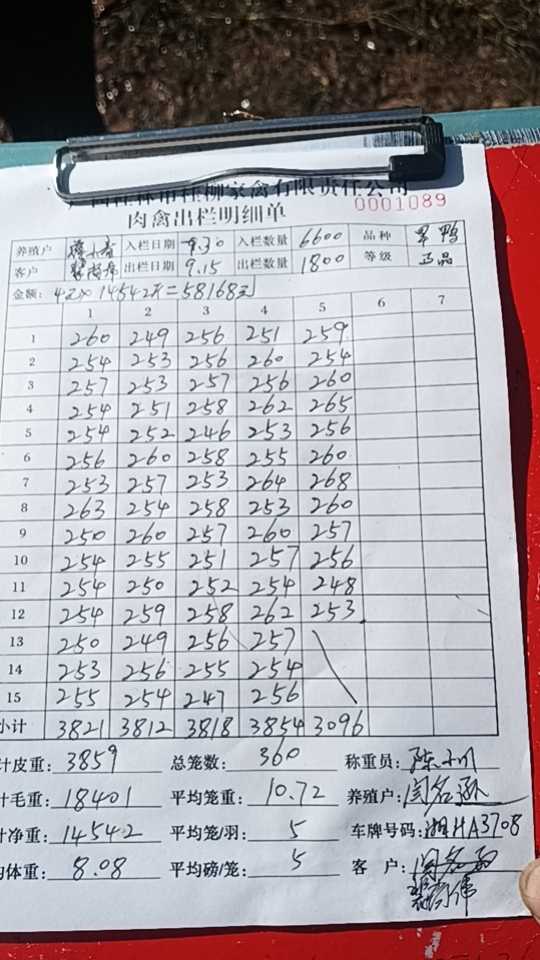 桂林市桂柳家禽有限责任公司
肉禽出栏明细单 0001089
养殖户 入栏日期 9.30 入栏数量 6600 品种 鸭
客户 出栏日期 9.15 出栏数量 1800 等级 正品
金额: 4元×14542斤=58168元
1 2 3 4 5 6 7
1 260 249 256 251 259
2 254 253 256 260 254
3 257 253 257 256 260
4 254 251 258 262 265
5 254 252 246 253 256
6 256 260 258 255 260
7 253 257 253 264 268
8 263 254 258 253 260
9 250 260 257 260 257
10 254 255 251 257 256
11 254 250 252 254 248
12 254 259 258 262 253
13 250 249 256 257
14 253 256 255 254
15 255 254 247 256
小计 3821 3812 3818 3854 3096
计皮重: 3859 总笼数: 360 称重员: 陈小川
计毛重: 18401 平均笼重: 10.72 养殖户:
计净重: 14542 平均笼/羽: 5 车牌号码: 湘HA3708
均体重: 8.08 平均磅/笼: 5 客户: